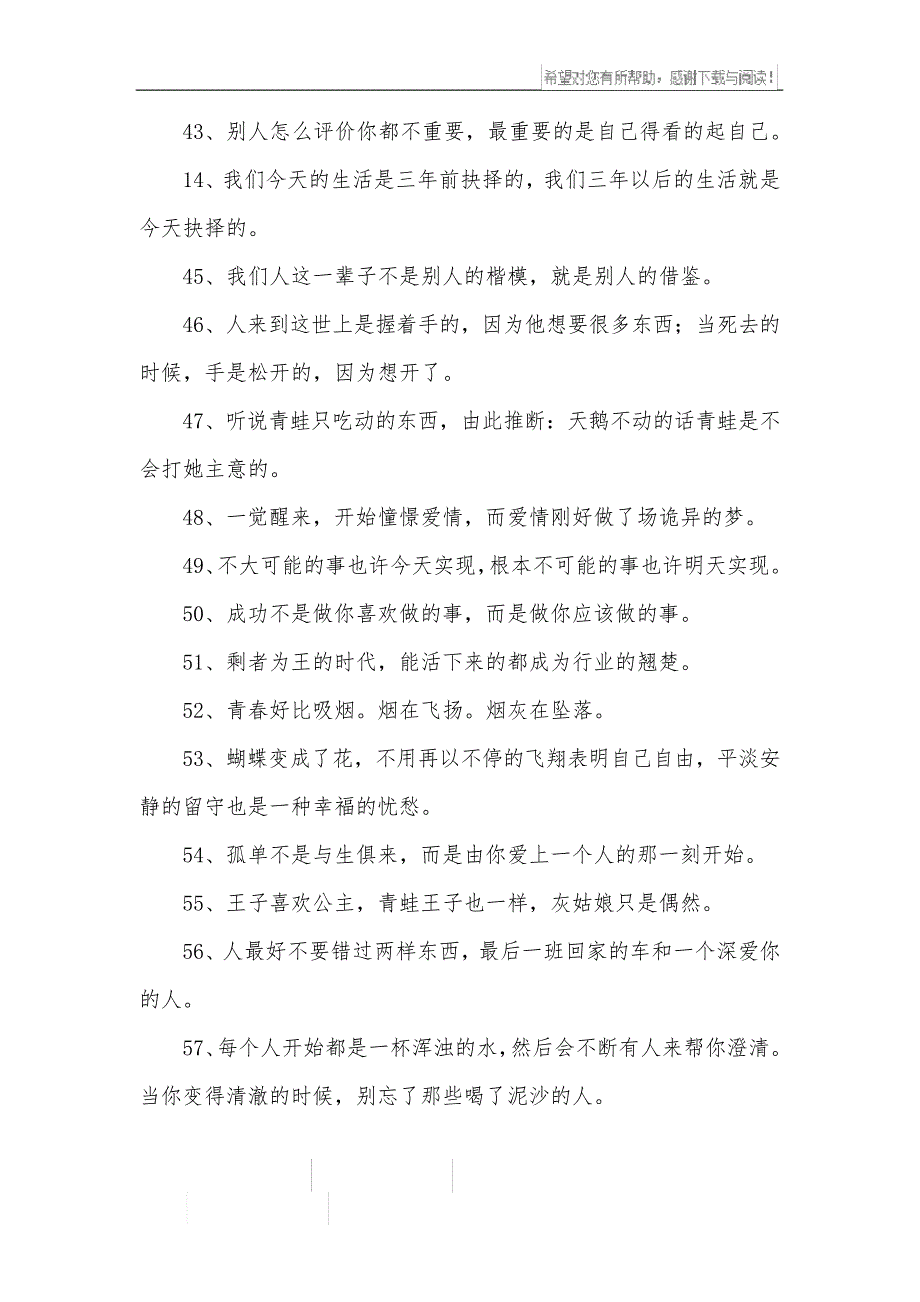 希望对您有所帮助，感谢下载与阅读！
43、别人怎么评价你都不重要，最重要的是自己得看的起自己。
14、我们今天的生活是三年前抉择的，我们三年以后的生活就是
今天抉择的。
45、我们人这一辈子不是别人的楷模，就是别人的借鉴。
46、人来到这世上是握着手的，因为他想要很多东西；当死去的
时候，手是松开的，因为想开了。
47、听说青蛙只吃动的东西，由此推断：天鹅不动的话青蛙是不
会打她主意的。
48、一觉醒来，开始憧憬爱情，而爱情刚好做了场诡异的梦。
49、不大可能的事也许今天实现，根本不可能的事也许明天实现。
50、成功不是做你喜欢做的事，而是做你应该做的事。
51、剩者为王的时代，能活下来的都成为行业的翘楚。
52、青春好比吸烟。烟在飞扬。烟灰在坠落。
53、蝴蝶变成了花，不用再以不停的飞翔表明自己自由，平淡安
静的留守也是一种幸福的忧愁。
54、孤单不是与生俱来，而是由你爱上一个人的那一刻开始。
55、王子喜欢公主，青蛙王子也一样，灰姑娘只是偶然。
56、人最好不要错过两样东西，最后一班回家的车和一个深爱你
的人。
57、每个人开始都是一杯浑浊的水，然后会不断有人来帮你澄清。
当你变得清澈的时候，别忘了那些喝了泥沙的人。